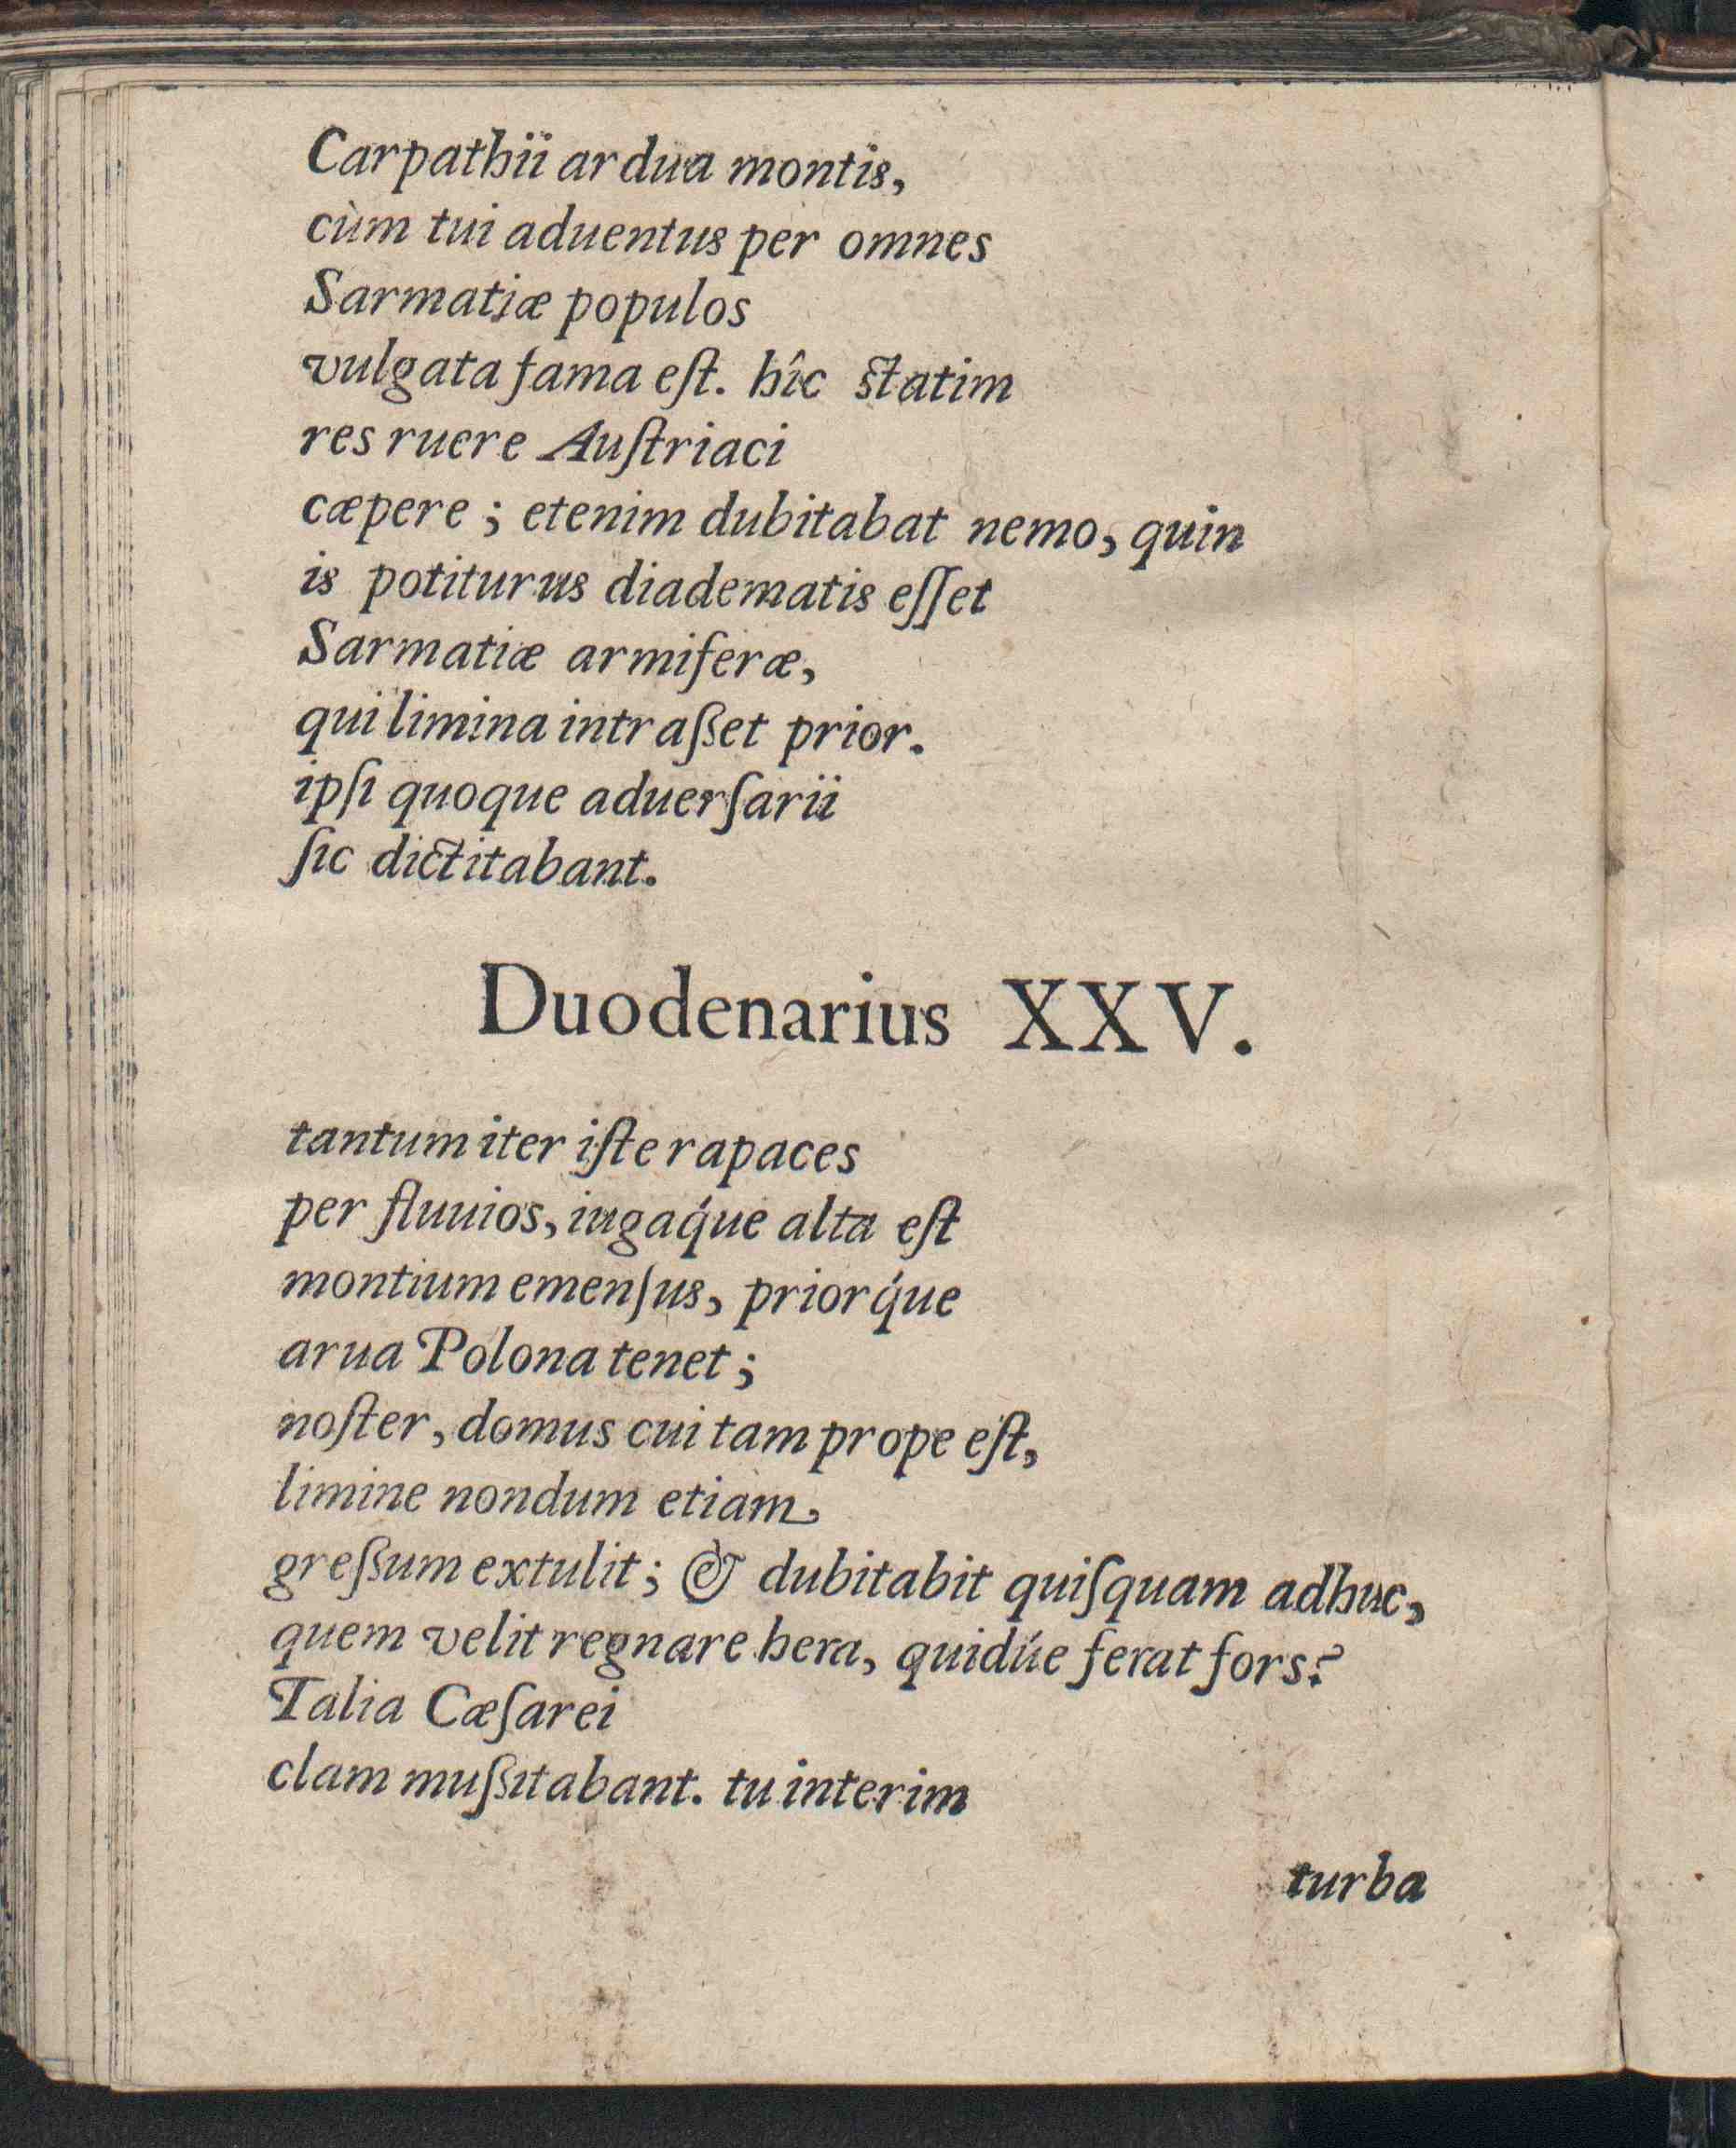 Carpathii ardua montis,
cùm tui aduentus per omnes
Sarmatiæ populos
vulgata fama eſt. hîc ſtatim
res ruere Auſtriaci
cæpere; etenim dubitabat nemo, quin
is potiturus diadematis eſſet
Sarmatiæ armiferæ,
qui limina intraſſet prior.
ipſi quoque aduerſarii
ſic dictitabant.
Duodenarius XXV.
tantum iter iſte rapaces
per fluuios, iugaq́ue alta eſt
montium emenſus, priorq́ue
arua Polona tenet;
noſter, domus cui tam prope eſt,
limine nondum etiam,
greſſum extulit; & dubitabit quiſquam adhuc,
quem velit regnare hera, quidúe ferat fors?
Talia Cæſarei
clam muſſitabant. tu interim
turba